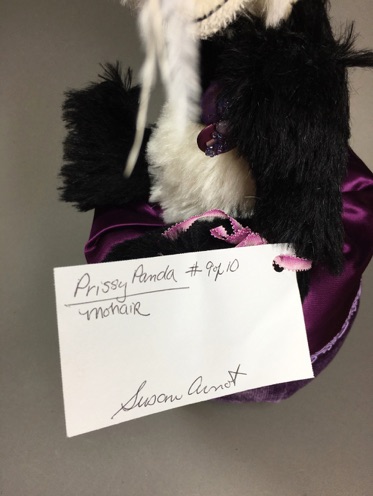 Prissy Panda #9 of 10
mohair
Susan Arnot